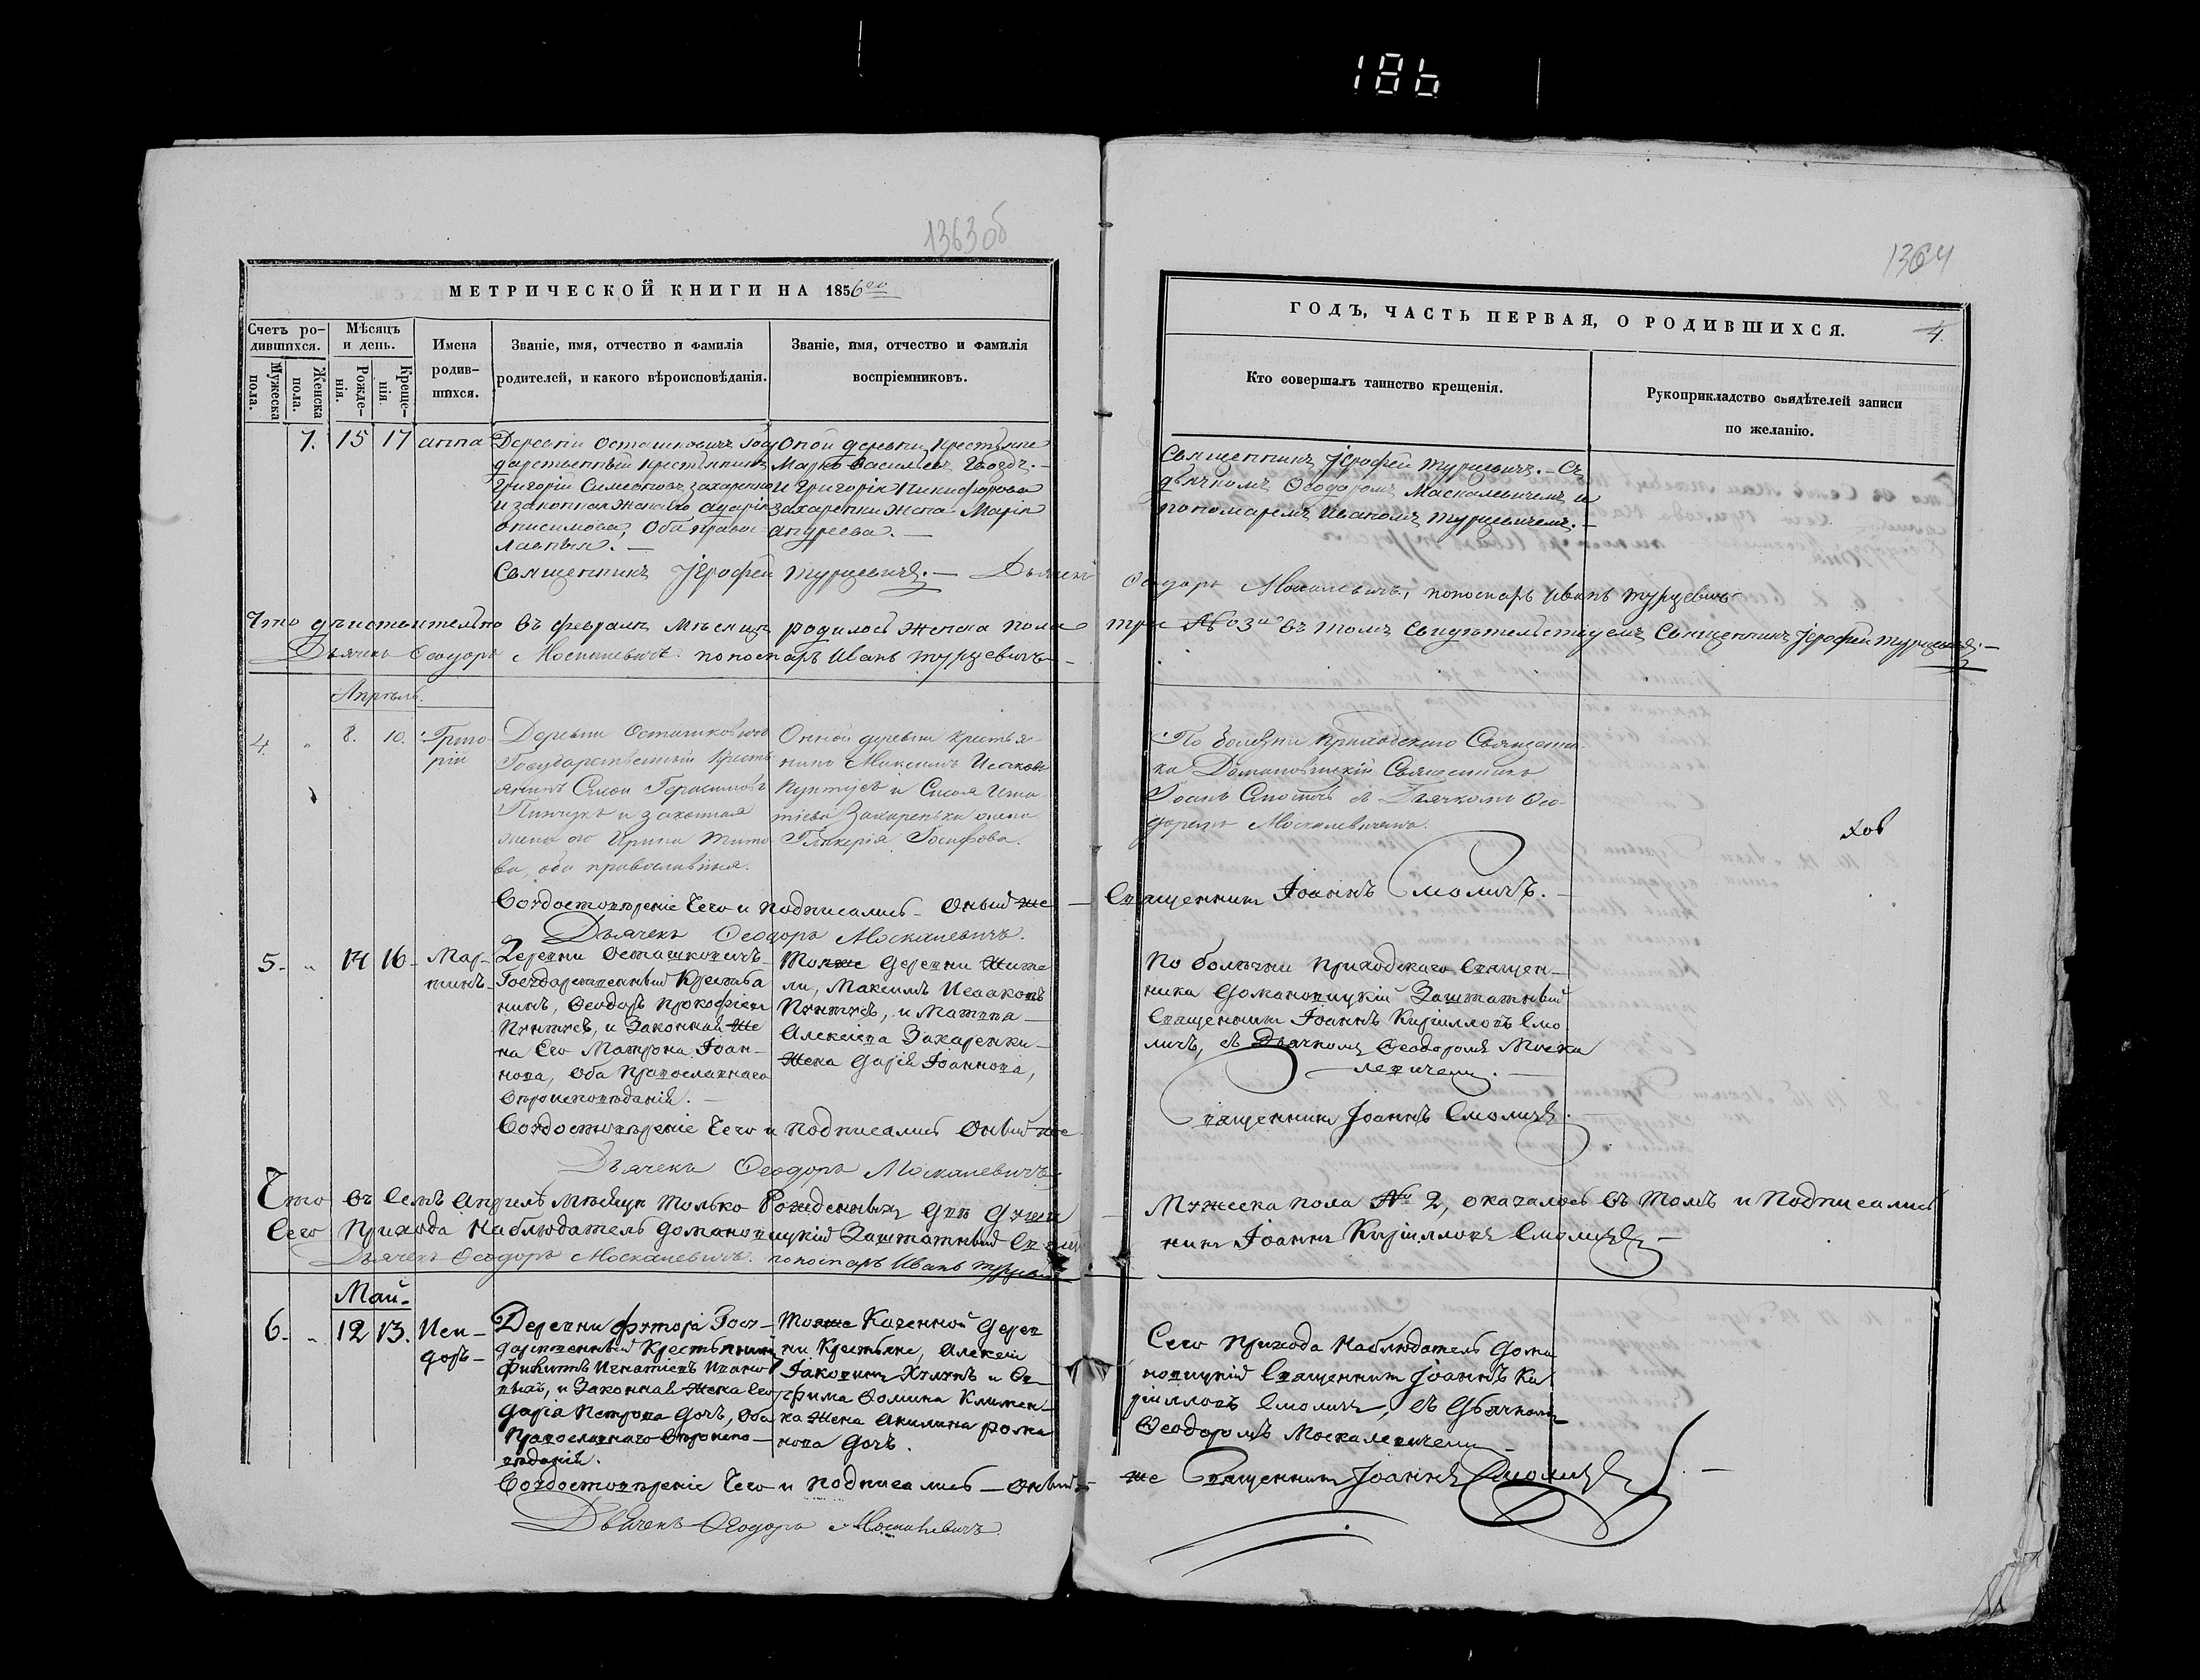 186
1363об
1364
МЕТРИЧЕСКОЙ КНИГИ НА 1856го
ГОДЪ, ЧАСТЬ ПЕРВАЯ, О РОДИВШИХСЯ.
4.
Счетъ ро-
дившихся.
Мужеска
пола.
Женска
пола.
Мѣсяцъ
и день.
Рожде-
нія.
Креще-
нія.
Имена
родив-
шихся.
Званіе, имя, отчество и фамилія
родителей, и какого вѣроисповѣданія.
Званіе, имя, отчество и фамилія
воспріемниковъ.
Кто совершалъ таинство крещенія.
Рукоприкладство свидѣтелей записи
по желанію.
7. 15 17 анна
Деревни Осташковичъ Госу
дарственный крестьянинъ
Григорій Симеоновъ захаренко
и законная жена его
онисимова, Оба право-
славныя.
Оной деревни крестьяне
Марко Василіевъ Гвоздь.
и Григорія Никифорова
захаренки жена Марія
андреева.
Священникъ Іерофей Турцевичъ. Съ
дьячкомъ Ѳеодоромъ Маскалевичемъ и
пономаремъ Иваномъ Турцевичемъ.
Священникъ Іерофей Турцевичъ. Дьячекъ Ѳеодоръ Москалевичъ, пономарь Иванъ Турцевичъ
Что дѣйствительно въ февралѣ Мѣсяцѣ родилось женска пола три № 3й въ томъ свидѣтельствуемъ Священникъ Іерофей Турцевичъ.
Дьячекъ Ѳеодоръ Москалевичъ. пономарь Иванъ Турцевичъ
Апрѣль.
4. „ 8. 10. Григо-
рій
Деревни Осташковичъ
Государственный Кресть
янинъ Герасимовъ
и законная
жена его Ирина Тито-
ва, оба православныя.
Оной деревни крестья-
нинъ Максимъ Исаковъ
Кунтусъ и Игна-
тіева Захареньки жена
Гликерія Іосифова.
По болезни приходскаго Священни-
ка Домановицкій Священникъ
Іоанъ Смоличъ съ Дьячкомъ Ѳео-
доромъ Москалевичемъ.
Удостовѣреніе Сего и подписались Оный же Священникъ Іоаннъ Смоличъ.
Дьячекъ Ѳеодоръ Москалевичъ.
5. „ 14 16 Мар-
тинъ
Деревни Осташковичъ
Государственный Крестья
нинъ, Ѳеодоръ Прокофіевъ
Кунтусъ, и Законная Же
на Его Матрона Іоан-
нова, Оба Православнаго
Вѣроисповѣданія.
Тояже деревни Жите
ли, Максимъ Исааковъ
Кунтусъ, и
Алексіева Захаренки
Жена Дарія Іоаннова,
По болѣзни Приходскаго Священ-
ника Домановицкій Заштатный
Священникъ Іоаннъ Кирилловъ Смо
личъ, съ Дьячкомъ Ѳеодоромъ Моска
левичемъ.
Священникъ Іоаннъ Смоличъ.
Удостовѣреніе Сего и подписались Оный же
Дьячекъ Ѳеодоръ Москалевичъ
Что въ Семъ Апрелѣ Мѣсяцѣ только Рожденныхъ Двѣ Души Мужеска пола № 2, оказалось въ томъ и Подписались
Сего Прихода Наблюдатель Домановицкій Заштатный Священникъ Іоаннъ Кирилловъ Смоличъ
Дьячекъ Ѳеодоръ Москалевичъ. пономарь Иванъ Турцевичъ
Май.
6. „ 12 13. Иси-
доръ
Деревни Государственный Крестьянинъ
Игнатіевъ
и Законная Жена Его
Дарія Петрова Дочь, Оба
Православнаго Вѣроиспо-
вѣданія.
Тояже Казенной Дерев
ни Крестьяне, Алексій
и
Фомина Климен-
ка Жена Акилина Рома
нова Дочь.
Сего Прихода Наблюдатель Дома
новицкій Священникъ Іоаннъ Ки
рилловъ Смоличъ, съ Дьячкомъ
Ѳеодоромъ Москалевичемъ
Удостовѣреніе Сего и подписались Оный же Священникъ Іоаннъ Смоличъ
Дьячекъ Ѳеодоръ Москалевичъ.